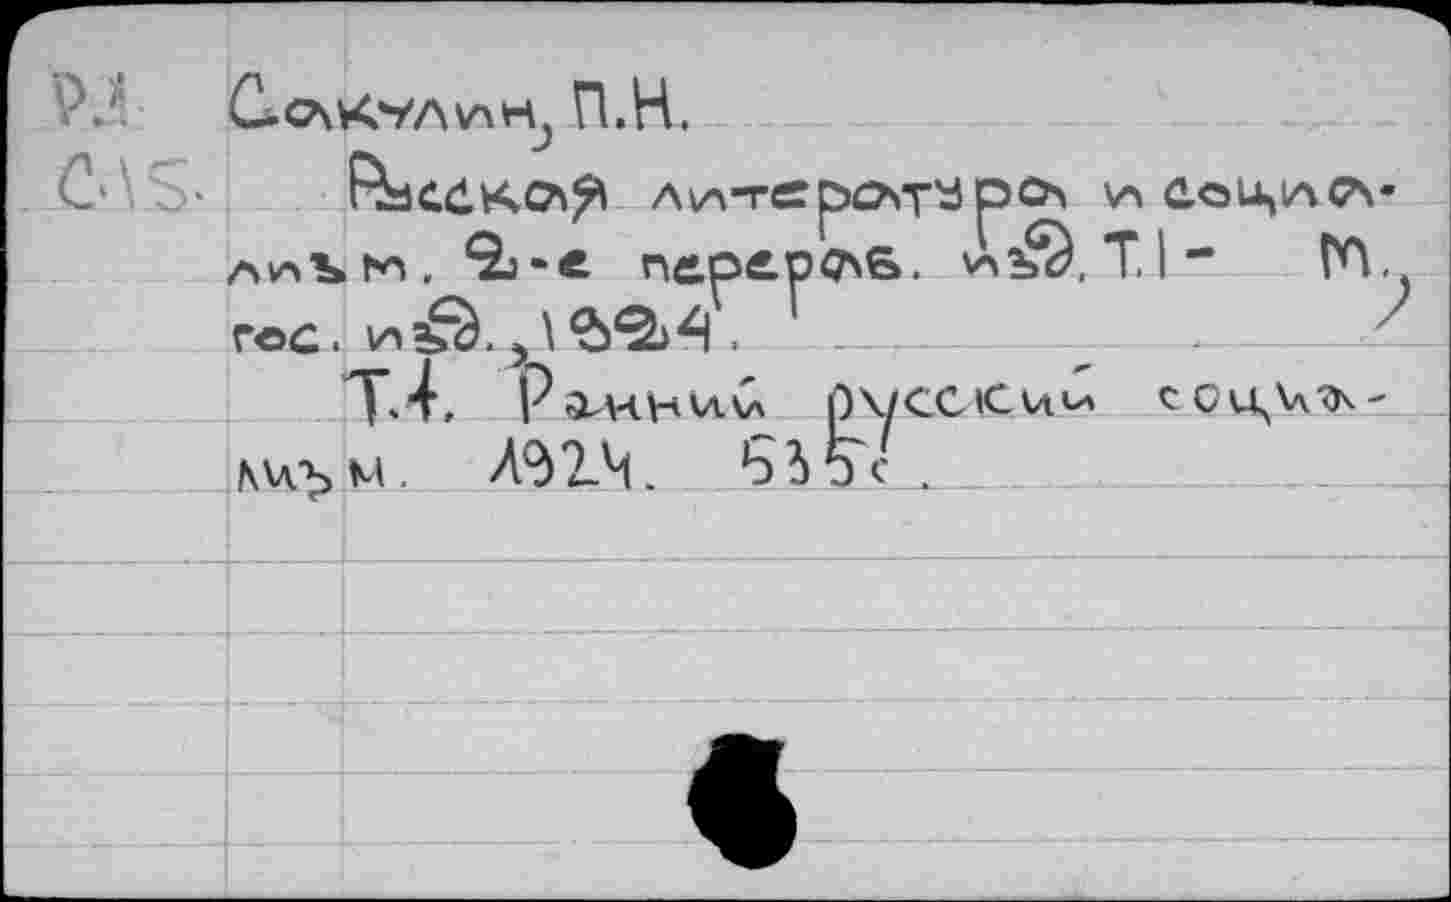 РЛ Сакулин, П.Н.
С-15. Русская литература и социа-
лизм. 2-е перераб. изд. Т.1- М.,
гос. изд., 1924.
Т.1. Ранний русский социа-
лизм. 1924. 535с.